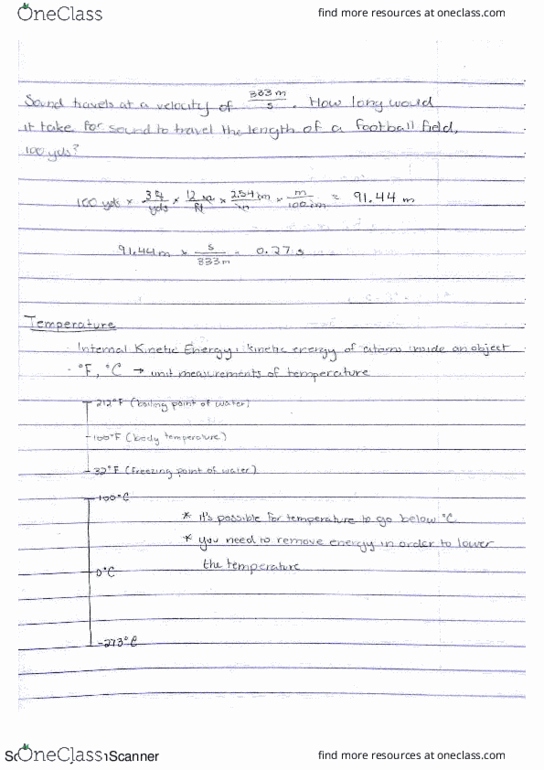 OneClass find more resources at oneclass.com
Sound travels at a velocity of 333 m/s. How long would
it take for sound to travel the length of a football field,
100 yds?
100 yds × 3 ft/yds × 12 in/ft × 2.54 cm/in × m/100 cm = 91.44 m
91.44 m × s/333 m = 0.27 s
Temperature
Internal Kinetic Energy: kinetic energy of atoms inside an object
·°F, °C → unit measurements of temperature
212°F (boiling point of water)
100°F (body temperature)
32°F (freezing point of water)
100°C
* it's possible for temperature to go below °C
* you need to remove energy in order to lower
0°C
the temperature
-273°C
OneClass Scanner find more resources at oneclass.com